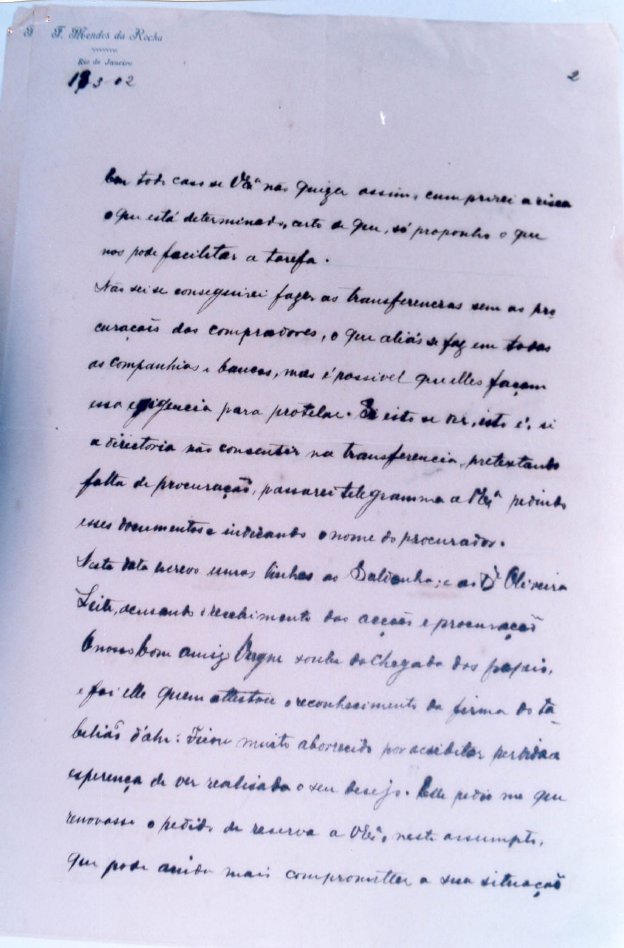 F. Mendes da Rocha
Rio de Janeiro
2
Em todo caso se VExª não quizer assim, cumprirei a risca
o que está determinado, certo de que, só proponho o que
nos pode facilitar a tarefa.
Não sei se conseguirei fazer as transferencias sem as pro
curações dos compradores, o que aliás se faz em todas
as companhias e bancos, mas é possivel que elles façam
essa exigencia para protelar. Si isto se der, isto é, si
a directoria não consentir na transferencia, pretextando
falta de procuração, passarei telegramma a VExª pedindo
esses documentos e indicando o nome do procurador.
Nesta data escrevo umas linhas ao Saldanha; e ao Dr Oliveira
Leite, accusando o recebimento das acções e procuração
O nosso bom amigo soube da chegada dos papeis,
e foi elle quem attestou o reconhecimento da firma do ta-
bellião d'ahi: Ficou muito aborrecido por acreditar perdida a
esperança de ver realisado o seu desejo. Elle pedio me que
renovasse o pedido de reserva a VExª, neste assumpto,
que pode ainda mais comprometter a sua situação